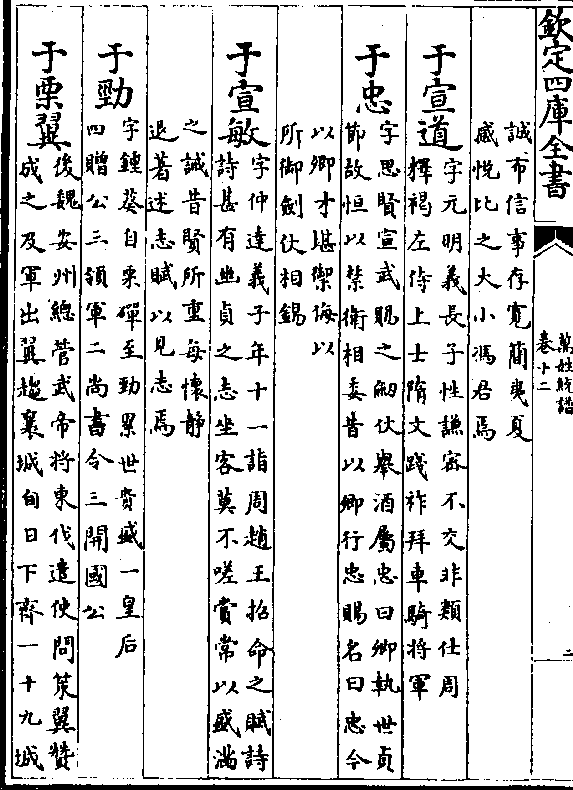 欽定四庫全書
萬姓統譜
卷十二
二
誠布信事存寛簡夷夏
感悅比之大小馮君焉
于宣道
字元明義長子性謙宻不交非類仕周
釋褐左侍上士隋文踐祚拜車騎將軍
于忠
字思賢宣武賜之劒仗舉酒屬忠曰卿執世貞
節故恒以禁衛相委昔以卿行忠賜名曰忠今
以卿才堪禦侮以
所御劍仗相錫
于宣敏
字仲達義子年十一詣周趙王招命之賦詩
詩甚有幽貞之志坐客莫不嗟賞常以盛滿
之誡昔賢所重每懷静
退著述志賦以見志焉
于勁
字鍾葵自栗磾至勁累世貴盛一皇后
四贈公三領軍二尚書令三開國公
于栗翼
後魏安州總管武帝將東伐遣使問䇿翼贊
成之及軍出翼趨襄城旬日下齊一十九城